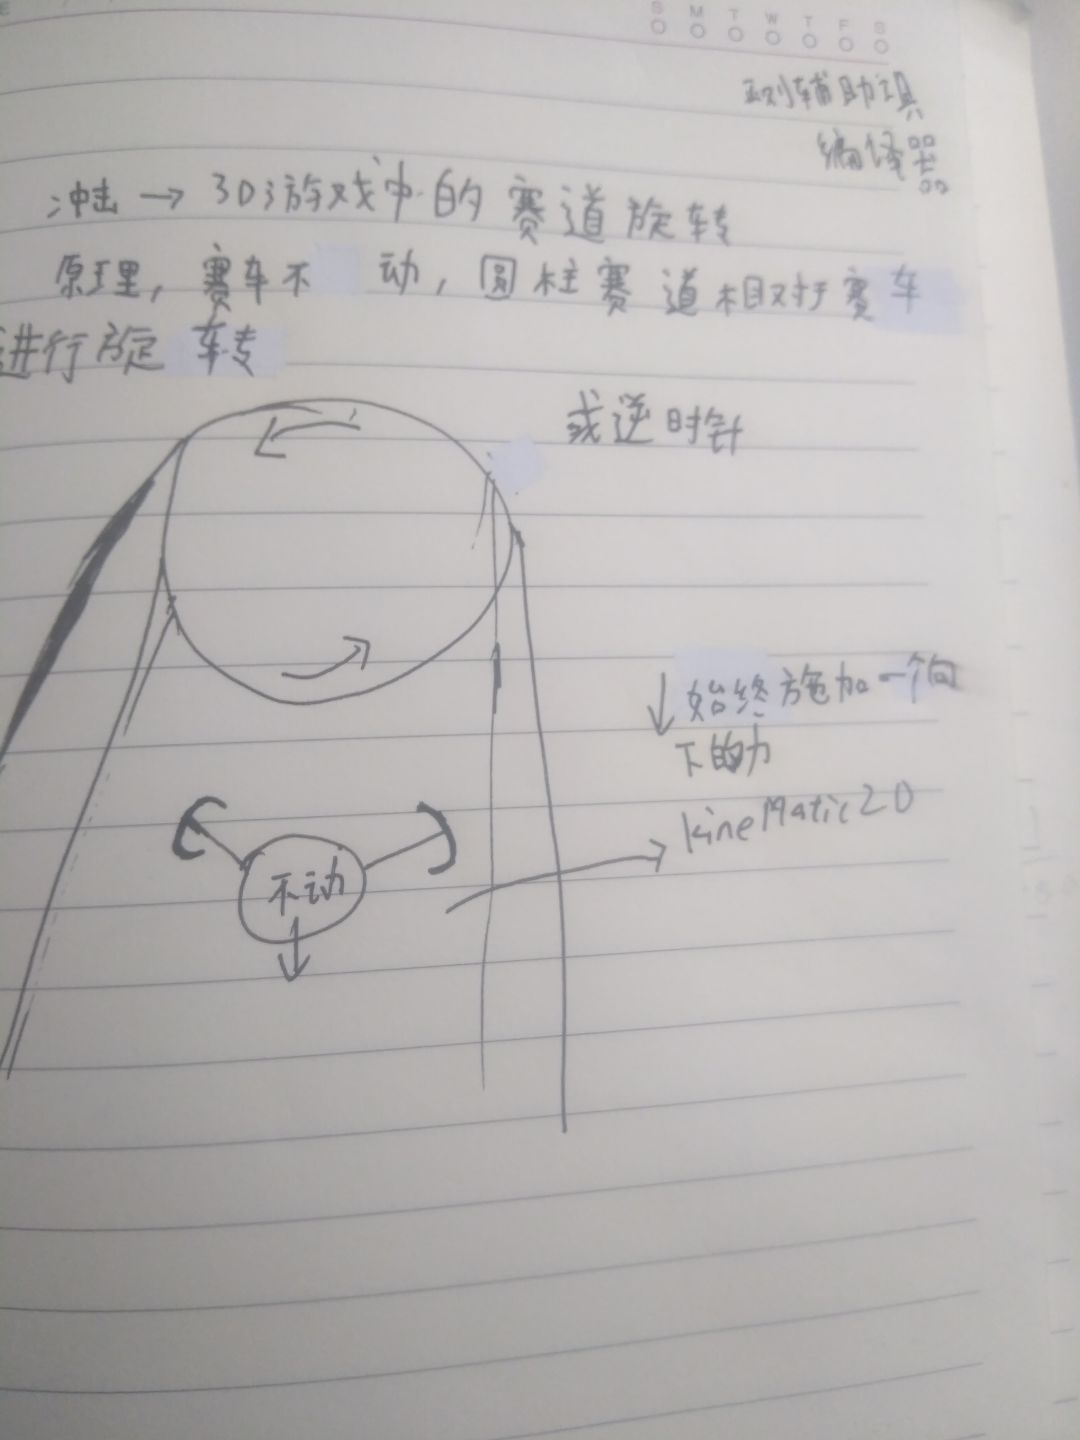 S M T W T F S
辅助项
编译器
冲击 → 3D游戏中的赛道旋转
原理，赛车不动，圆柱赛道相对于赛车
进行旋转
或逆时针
↓始终施加一个向
下的力
kineMatic2D
不动